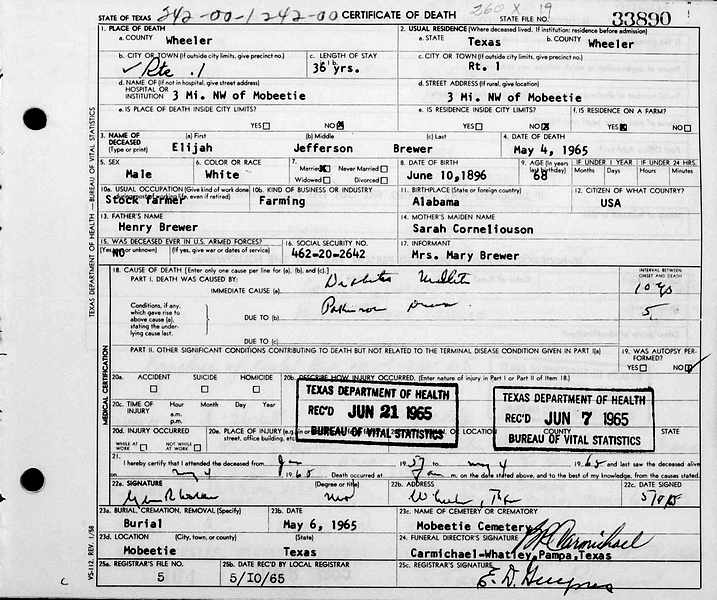 STATE OF TEXAS 242-00-1242-00 CERTIFICATE OF DEATH 360 X 19 STATE FILE NO. 33890
1. PLACE OF DEATH
a. COUNTY Wheeler
2. USUAL RESIDENCE (Where deceased lived. If institution: residence before admission)
a. STATE Texas b. COUNTY Wheeler
b. CITY OR TOWN (If outside city limits, give precinct no.) Rte. 1
c. LENGTH OF STAY 36 yrs.
c. CITY OR TOWN (If outside city limits, give precinct no.) Rt. 1
d. NAME OF (If not in hospital, give street address) HOSPITAL OR INSTITUTION 3 Mi. NW of Mobeetie
d. STREET ADDRESS (If rural, give location) 3 Mi. NW of Mobeetie
e. IS PLACE OF DEATH INSIDE CITY LIMITS? YES NO
e. IS RESIDENCE INSIDE CITY LIMITS? YES NO
f. IS RESIDENCE ON A FARM? YES NO
3. NAME OF DECEASED (Type or print) (a) First Elijah (b) Middle Jefferson (c) Last Brewer
4. DATE OF DEATH May 4, 1965
5. SEX Male
6. COLOR OR RACE White
7. Married Never Married Widowed Divorced
8. DATE OF BIRTH June 10,1896
9. AGE (In years last birthday) 68
IF UNDER 1 YEAR Months Days
IF UNDER 24 HRS. Hours Minutes
10a. USUAL OCCUPATION (Give kind of work done during most of working life, even if retired) Stock farmer
10b. KIND OF BUSINESS OR INDUSTRY Farming
11. BIRTHPLACE (State or foreign country) Alabama
12. CITIZEN OF WHAT COUNTRY? USA
13. FATHER'S NAME Henry Brewer
14. MOTHER'S MAIDEN NAME Sarah Corneliouson
15. WAS DECEASED EVER IN U.S. ARMED FORCES? (Yes, no or unknown) (If yes, give war or dates of service) NO
16. SOCIAL SECURITY NO. 462-20-2642
17. INFORMANT Mrs. Mary Brewer
18. CAUSE OF DEATH [Enter only one cause per line for (a), (b), and (c).]
INTERVAL BETWEEN ONSET AND DEATH
PART I. DEATH WAS CAUSED BY:
IMMEDIATE CAUSE (a) Diabetes Mellitus 10 yrs
Conditions, if any, which gave rise to above cause (a), stating the underlying cause last.
DUE TO (b) Parkinson 5
DUE TO (c)
PART II. OTHER SIGNIFICANT CONDITIONS CONTRIBUTING TO DEATH BUT NOT RELATED TO THE TERMINAL DISEASE CONDITION GIVEN IN PART I(a)
19. WAS AUTOPSY PERFORMED? YES NO
20a. ACCIDENT SUICIDE HOMICIDE
20b. DESCRIBE HOW INJURY OCCURRED. (Enter nature of injury in Part I or Part II of Item 18.)
20c. TIME OF INJURY Hour Month Day Year a.m. p.m.
TEXAS DEPARTMENT OF HEALTH
REC'D JUN 21 1965
BUREAU OF VITAL STATISTICS
TEXAS DEPARTMENT OF HEALTH
REC'D JUN 7 1965
BUREAU OF VITAL STATISTICS
20d. INJURY OCCURRED WHILE AT WORK NOT WHILE AT WORK
20e. PLACE OF INJURY street, office building, etc. LOCATION COUNTY STATE
21. I hereby certify that I attended the deceased from Jan 1957 to May 4 1965 and last saw the deceased alive
on May 4 1965 Death occurred at m. on the date stated above; and to the best of my knowledge, from the causes stated.
22a. SIGNATURE (Degree or title) MD
22b. ADDRESS Wheeler, Tex
22c. DATE SIGNED
23a. BURIAL, CREMATION, REMOVAL (Specify) Burial
23b. DATE May 6, 1965
23c. NAME OF CEMETERY OR CREMATORY Mobeetie Cemetery
23d. LOCATION (City, town, or county) (State) Mobeetie Texas
24. FUNERAL DIRECTOR'S SIGNATURE Carmichael
Carmichael-Whatley, Pampa, Texas
25a. REGISTRAR'S FILE NO. 5
25b. DATE REC'D BY LOCAL REGISTRAR 5/10/65
25c. REGISTRAR'S SIGNATURE
TEXAS DEPARTMENT OF HEALTH — BUREAU OF VITAL STATISTICS
MEDICAL CERTIFICATION
VS-112, REV. 1/58
C